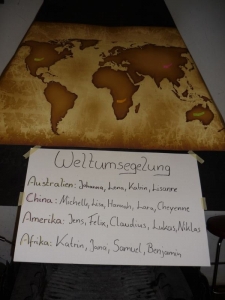 Weltumsegelung
Australien: Johanna, Lena, Katrin, Lisanne
China: Michelle, Lisa, Hannah, Lara, Cheyenne
Amerika: Jens, Felix, Claudius, Lukas, Niklas
Afrika: Katrin, Jana, Samuel, Benjamin